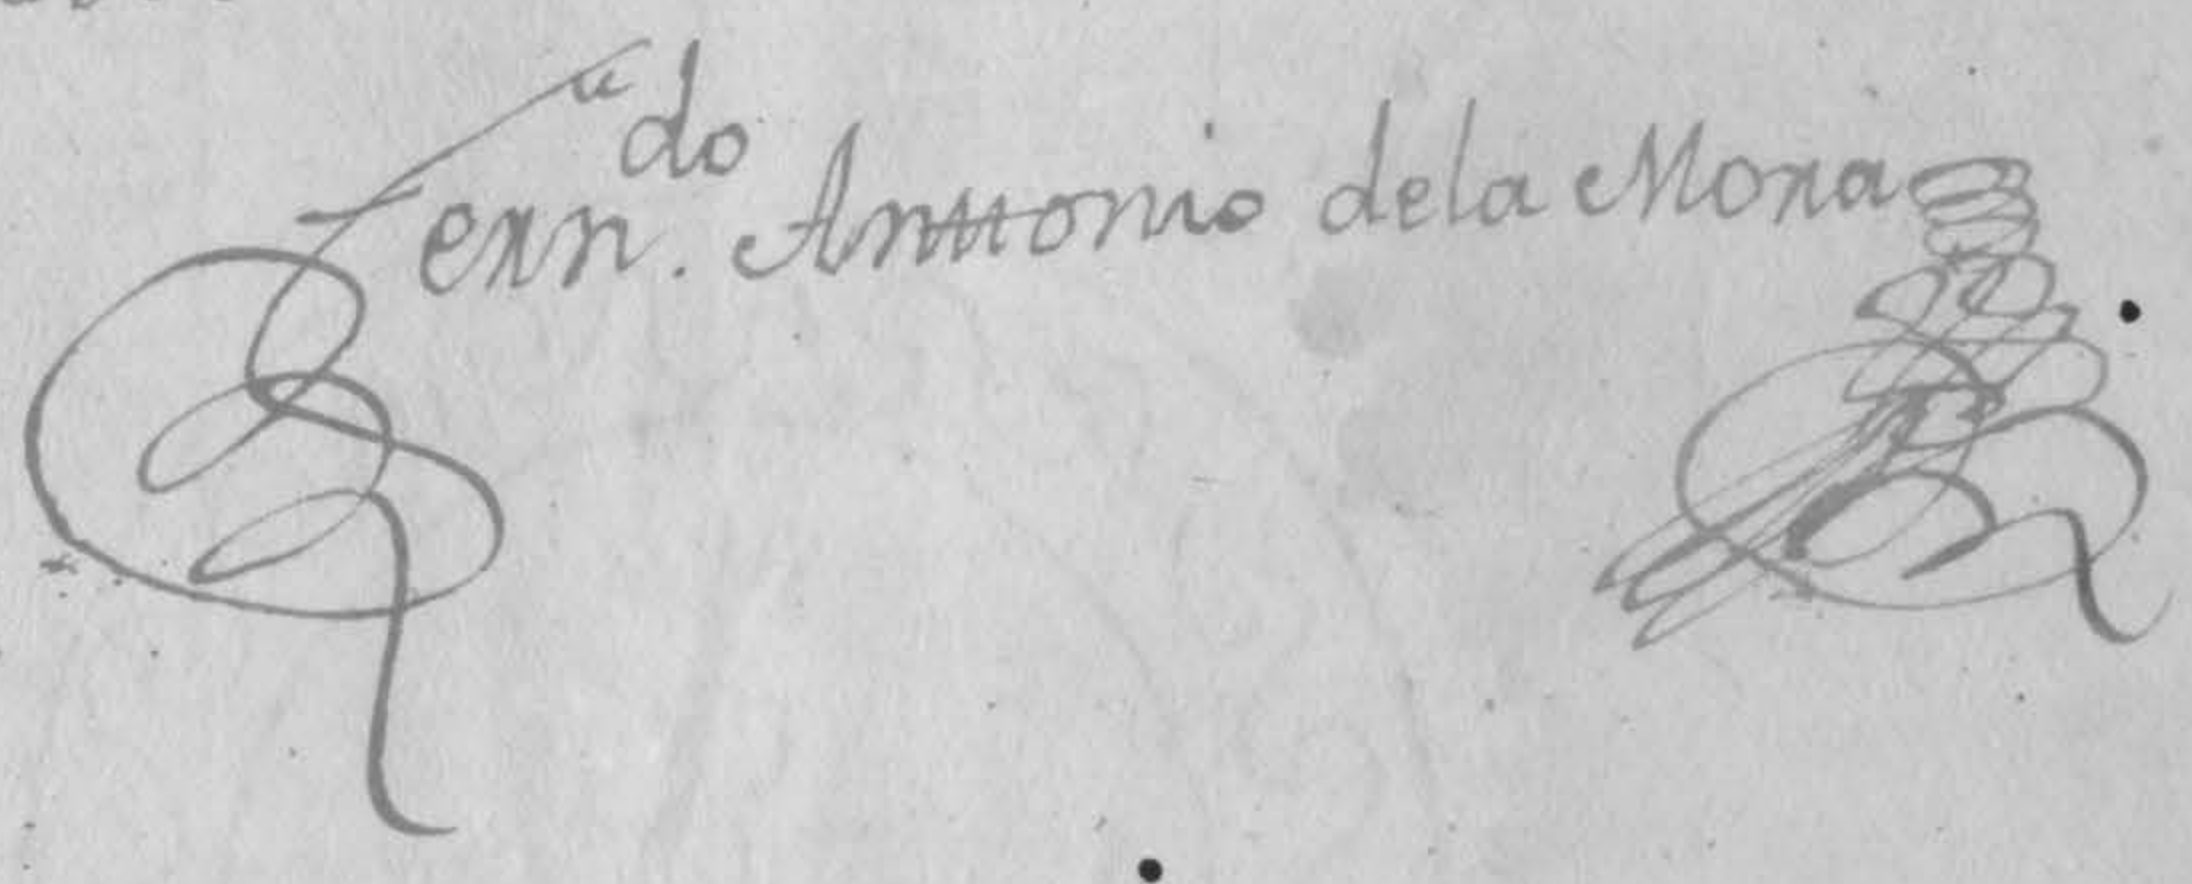 Fern.do Anttonio dela Mora